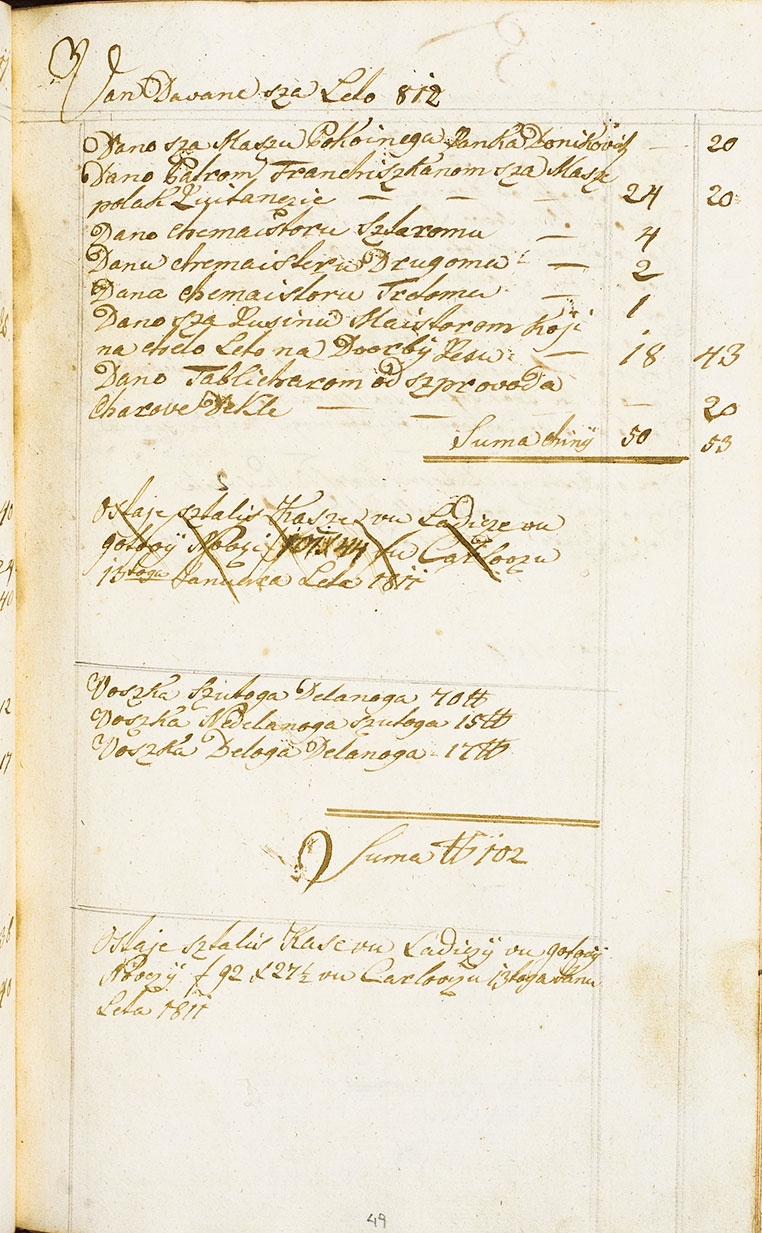 Van Davane sza Leto 812
Dano sza Maszu Pokoinega Janka Donikovich — 20
Dano Patrom Franchiszkanom sza Masze
polak Quitanczie — — — 24 20
Dano chemaistoru Sztaromu — 4
Danu chemaisteru Drugomu — 2
Dana chemaistoru Tretomu — 1
Dano sza Kusinu Maistorom Koji
na chelo Leto na Dvorby Jesu — 18 43
Dano Tablicharom od szprovoda
Charove Dekle — — — — 20
Suma chiny 50 53
Ostaje sztalis Kasze vu Ladicze vu
gotovij Novczi f 101 x 44 vu Carlovczu
13toga Januara Leta 1811
Voszka szutoga Delanoga 70 ℔
Voszka Nedelanoga szutoga 15 ℔
Voszka Beloga Delanoga - 17 ℔
Suma ℔ 102
Ostaje sztalis Kase vu Ladiczy vu gotovij
Novczij f 92 x 27½ vu Carlovczu 13toga Janu
Leta 1811
49